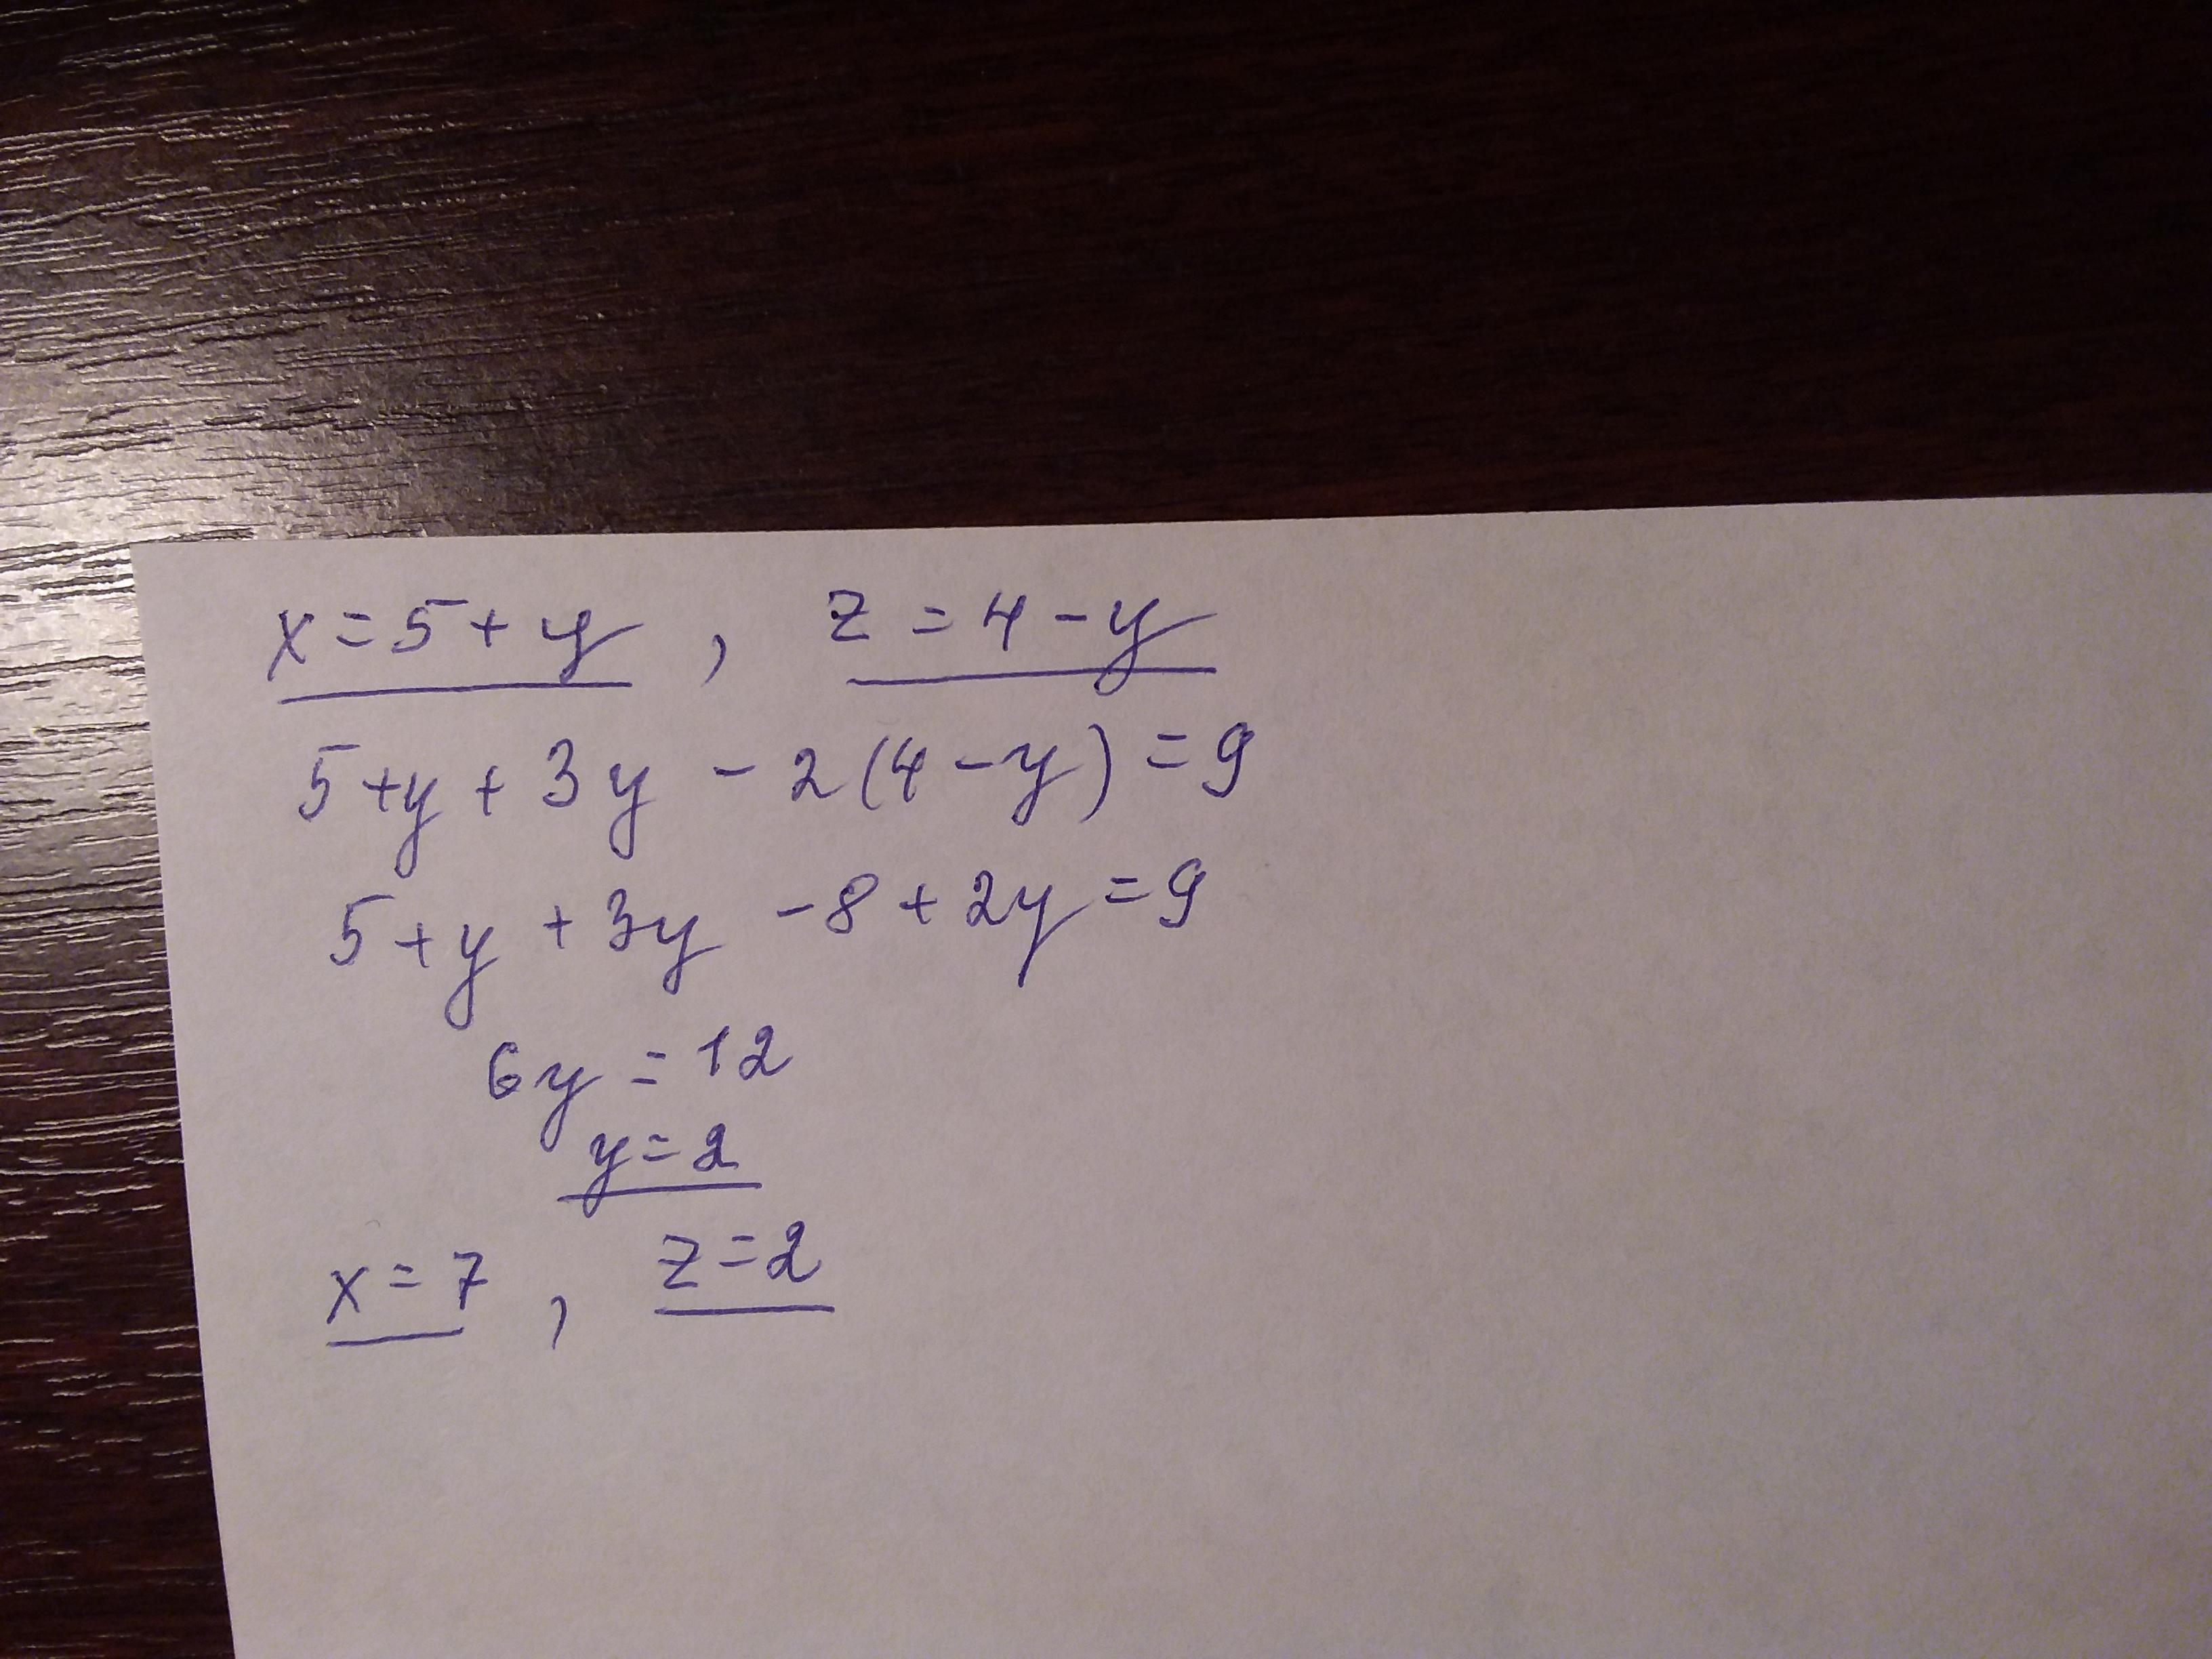 x=5+y, z=4-y
5+y+3y-2(4-y)=9
5+y+3y-8+2y=9
6y=12
y=2
x=7, z=2